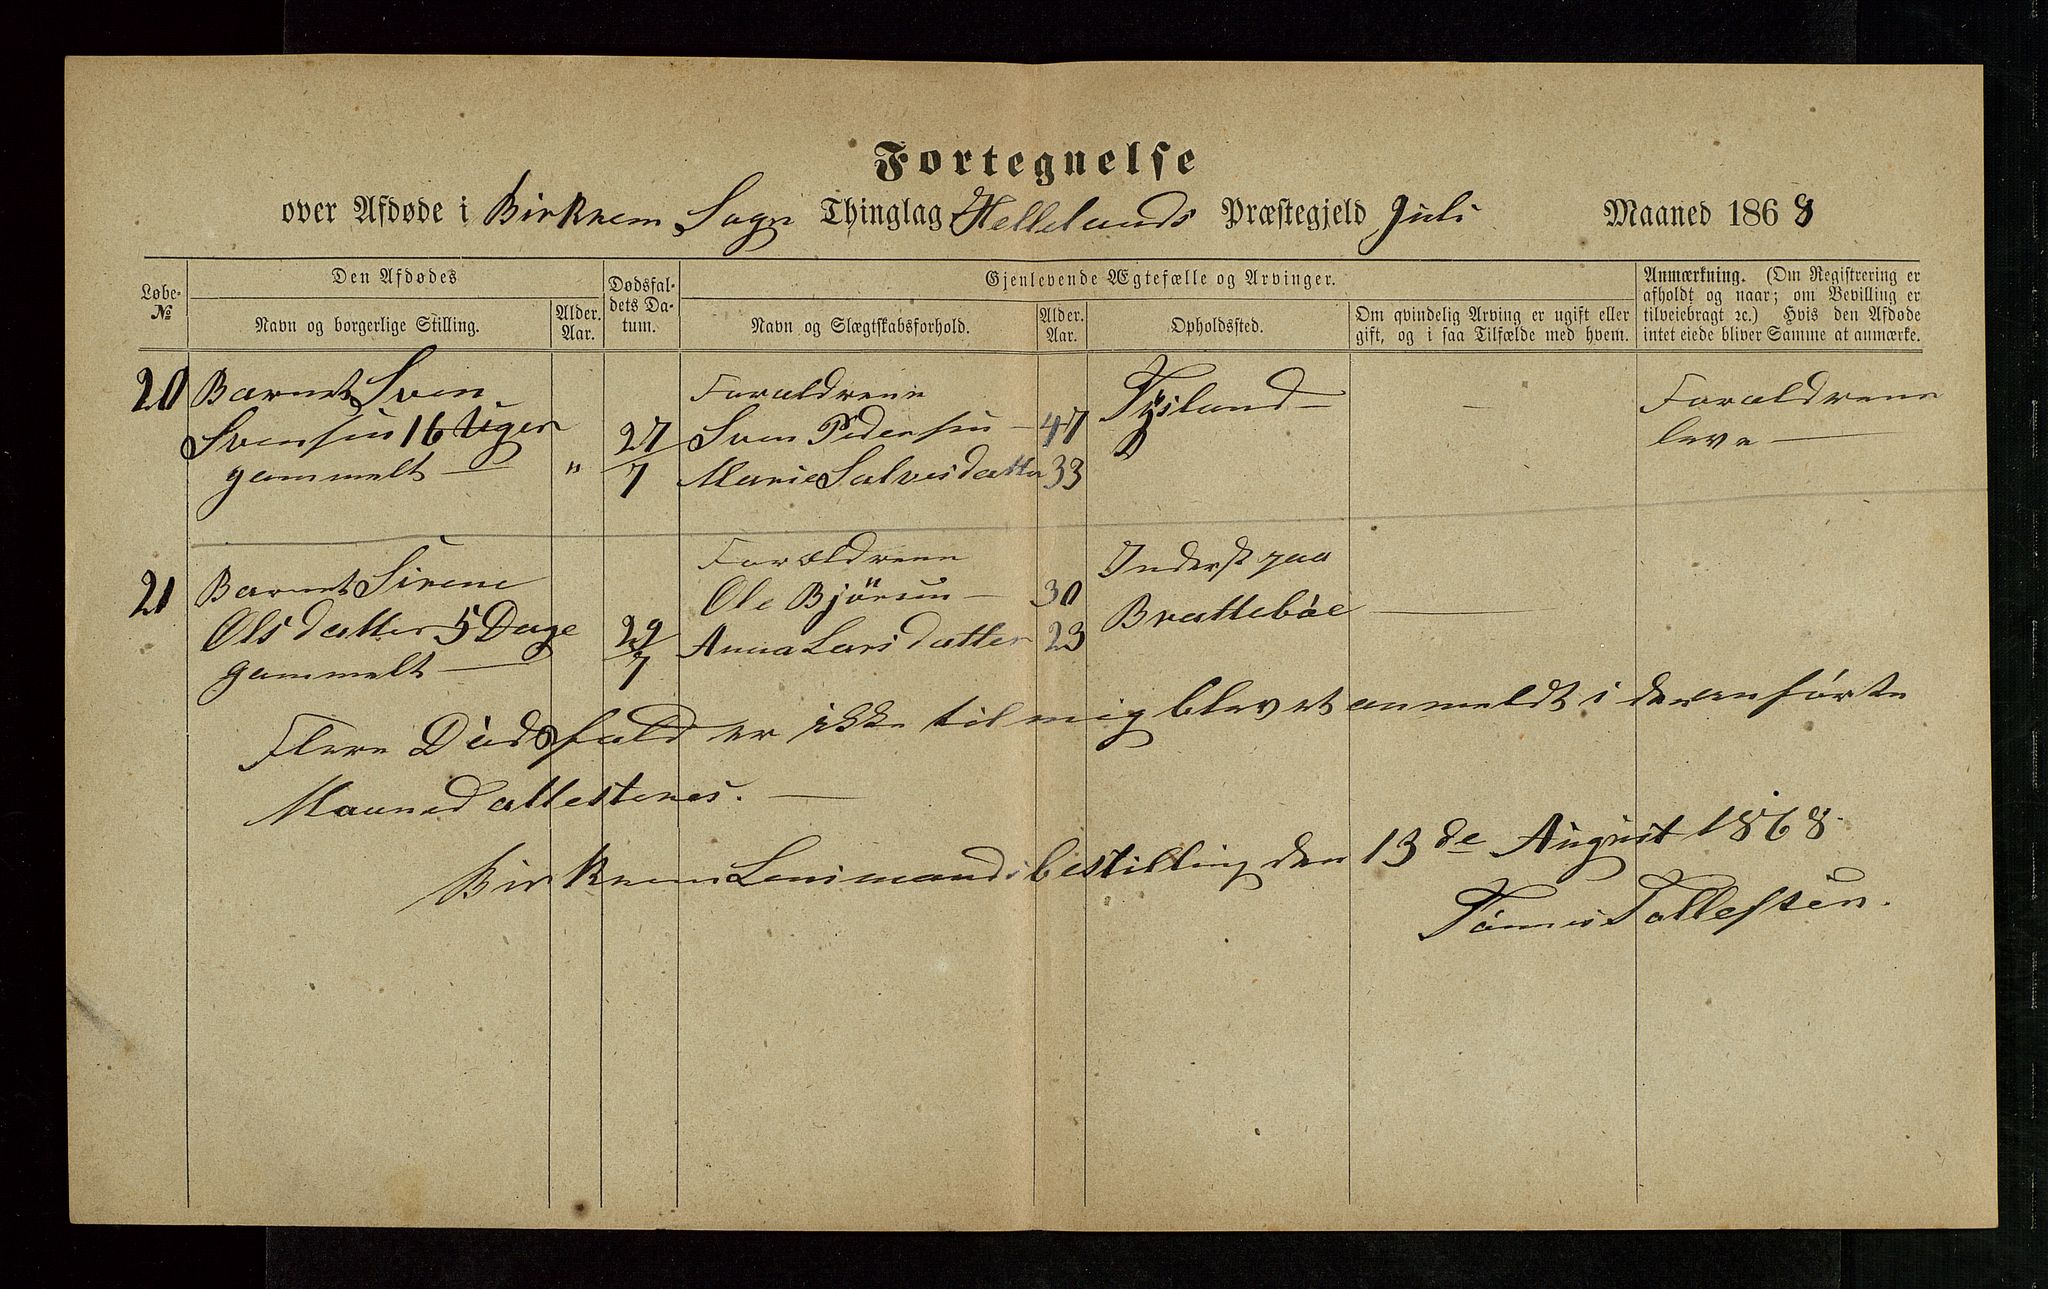 Fortegnelse
over Afdøde i Birkrem Sogn Thinglag Hellelands Præstegjeld Juli Maaned 1868
Løbe-№
Den Afdødes
Navn og borgerlige Stilling.
Alder. Aar.
Dødsfaldets Datum.
Gjenlevende Ægtefælle og Arvinger.
Navn og Slægtskabsforhold.
Alder. Aar.
Opholdssted.
Om qvindelig Arving er ugift eller
gift, og i saa Tilfælde med hvem.
Anmærkning. (Om Registrering er
afholdt og naar; om Bevilling er
tilveiebragt ꝛc.) Hvis den Afdøde
intet eiede bliver Samme at anmærke.
20 Barnet Sven Foraldrene Tysland — — Foraldrene
Svensen 16 Uger 27 Sven Pedersen — 47 leve —
gammelt — " 7 Marie Salvesdatter 33
Forældrene Inderst paa
21 Barnet Sirene Ole Bjørsen — 30 Brattebøe —
Olsdatter 5 Dage 29 Anna Larsdatter 23
gammelt — 7
Flere Dødsfald er ikke til mig blevet anmeldt i den anførte
Maaned attesteres. —
Birkrem Lensmandsbestilling den 13de August 1868.
Tønnes Tollefsen.